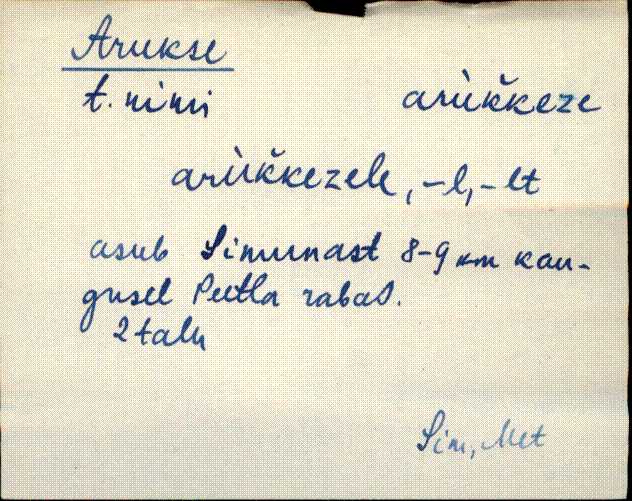 Arukse
t. nimi arùk̆keze
arùk̆kezele, -l, -lt
asub Simunast 8-9 km kau-
gusel Peetla rabas.
2 talu
Sim, Met